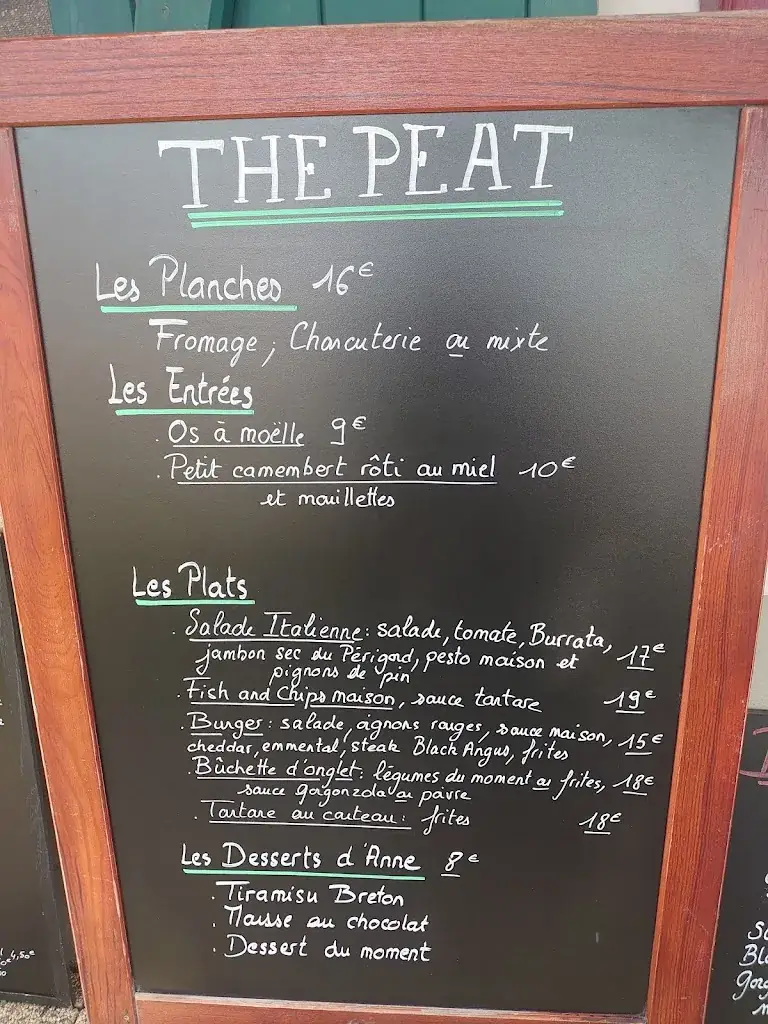 THE PEAT
Les Planches 16€
Fromage, Charcuterie ou mixte
Les Entrées
. Os à moëlle 9€
. Petit camembert rôti au miel 10€
et mouillettes
Les Plats
. Salade Italienne : salade, tomate, Burrata, 17€
jambon sec du Périgord, pesto maison et
pignons de pin
. Fish and Chips maison, sauce tartare 19€
. Burger : salade, oignons rouges, sauce maison, 15€
cheddar, emmental, steak Black Angus, frites
. Bûchette d'onglet : légumes du moment ou frites, 18€
sauce gorgonzola ou poivre
. Tartare au couteau : frites 18€
Les Desserts d'Anne 8€
. Tiramisu Breton
. Mousse au chocolat
. Dessert du moment
4,50€